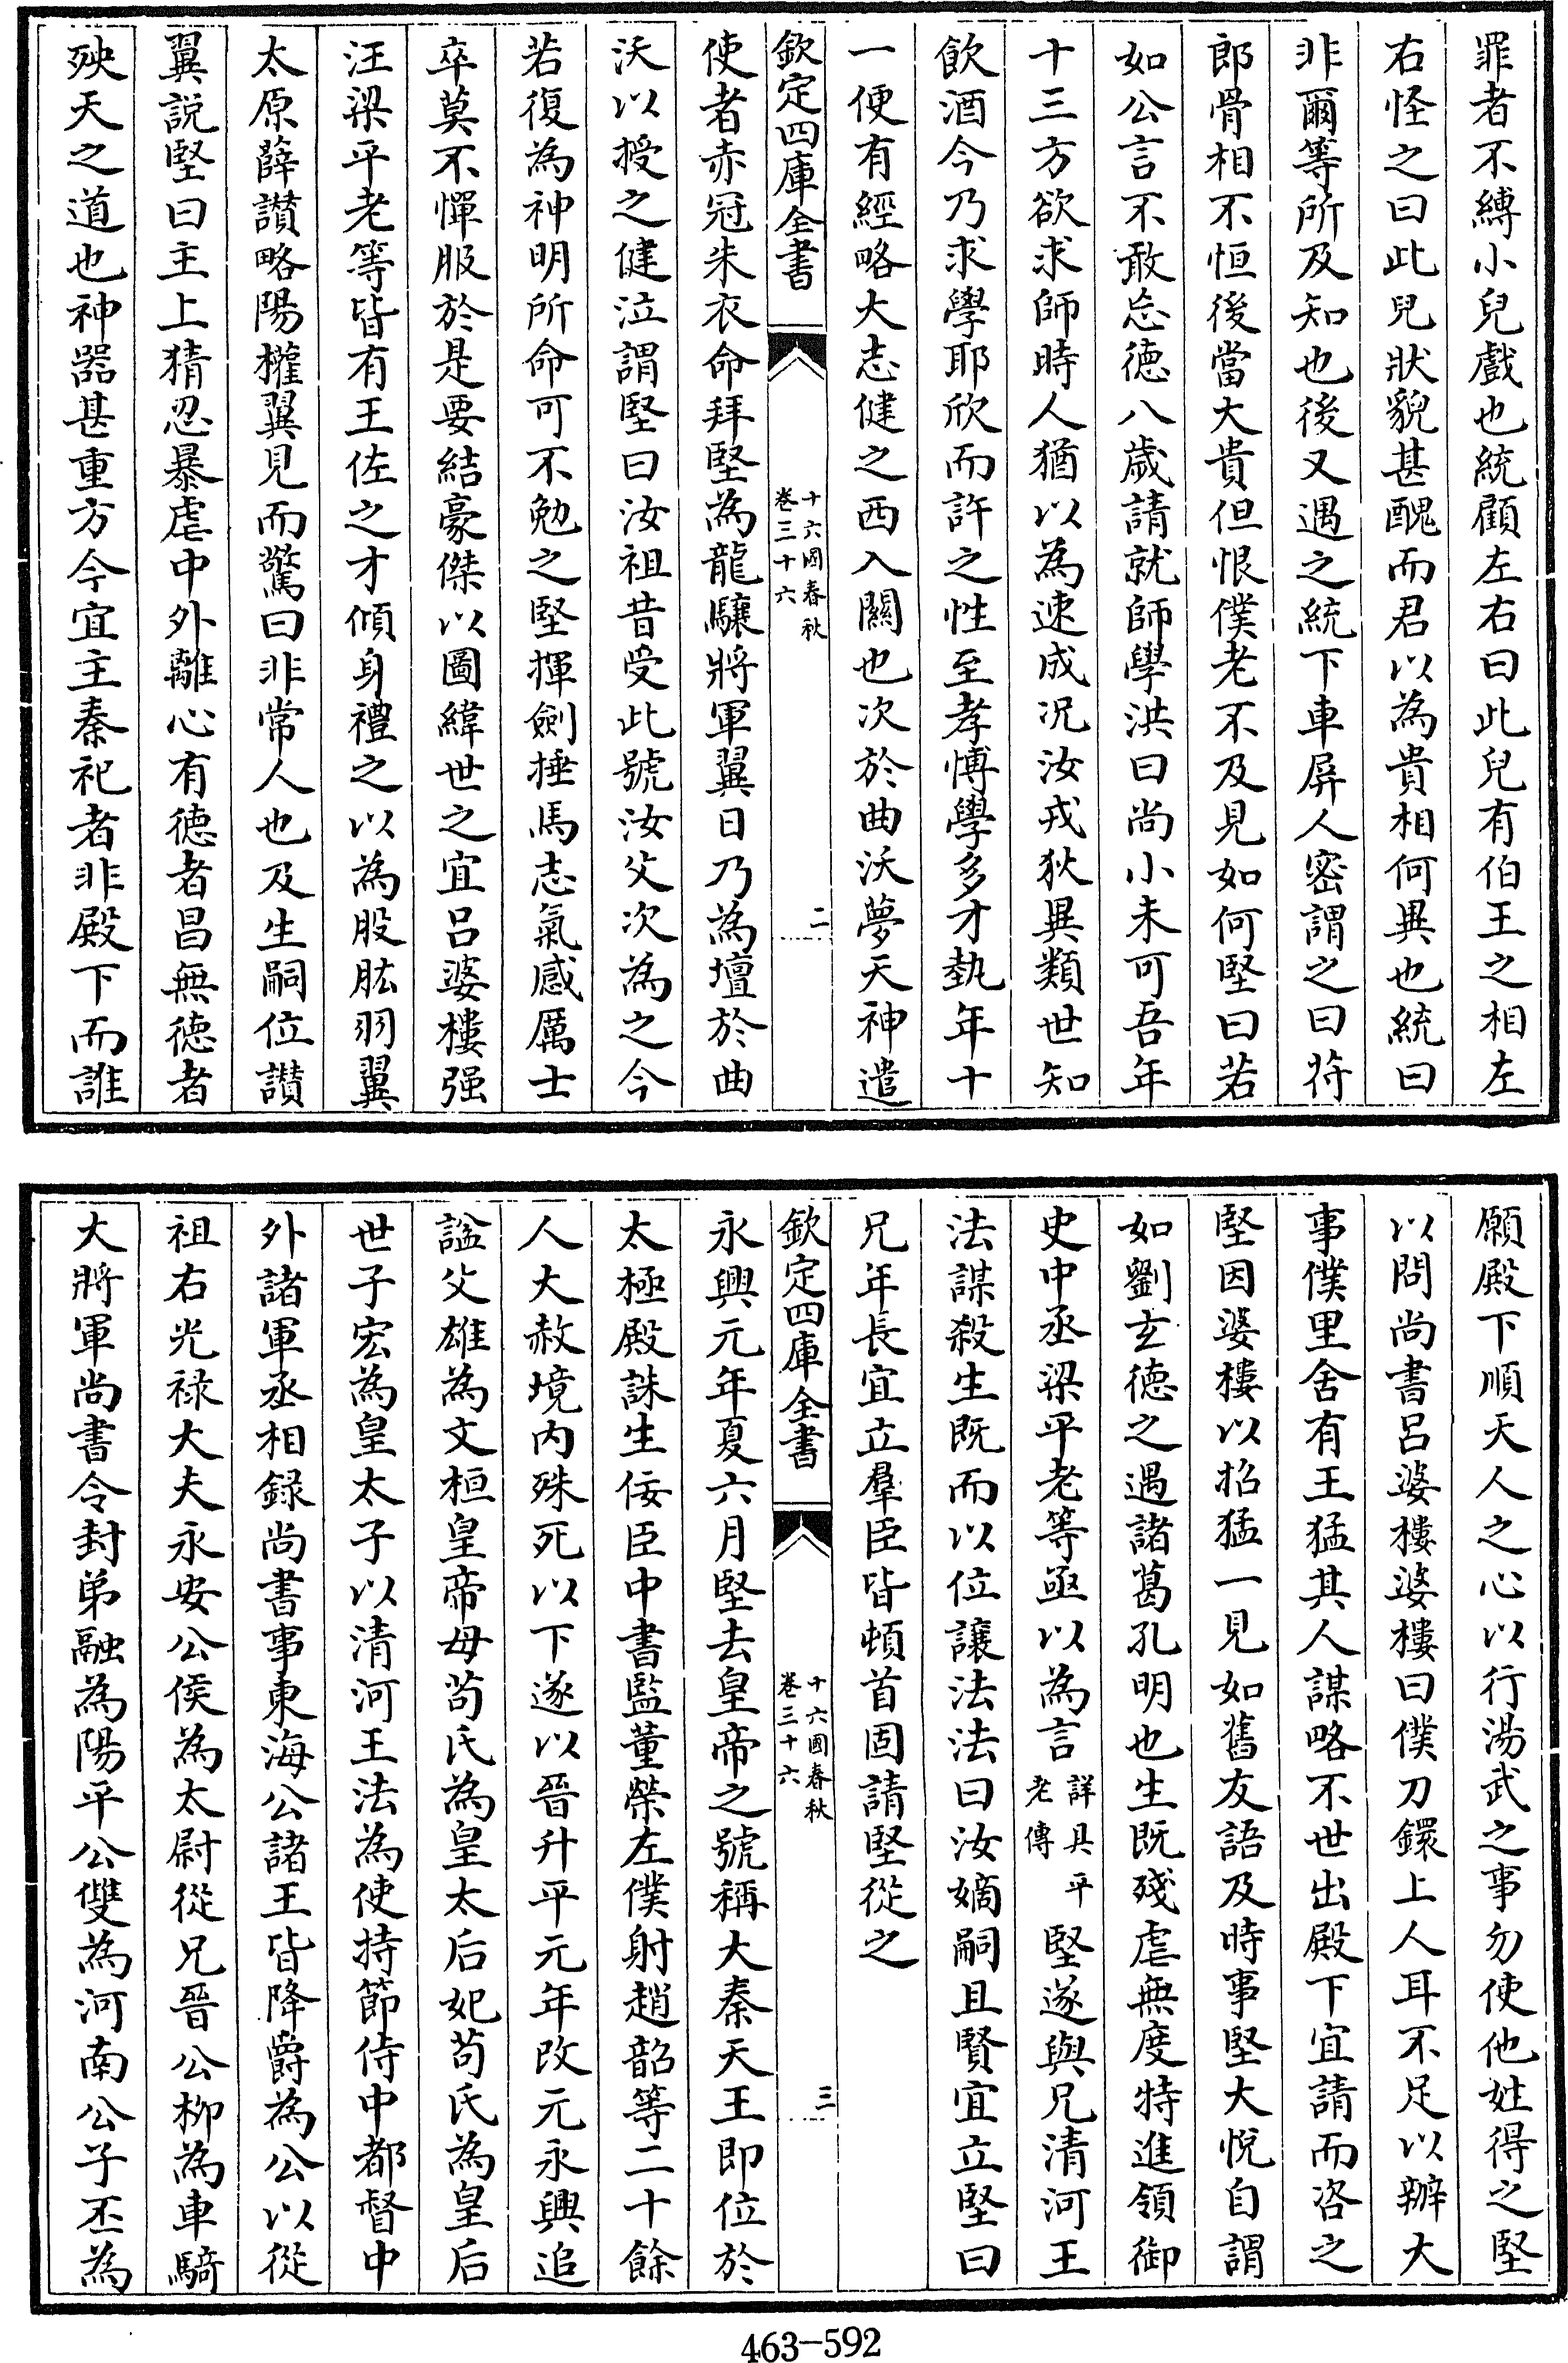 罪者不縛小兒戲也統顧左右曰此兒有伯王之相左
右怪之曰此兒狀貌甚醜而君以為貴相何異也統曰
非爾等所及知也後又遇之統下車屏人密謂之曰苻
郎骨相不恒後當大貴但恨僕老不及見如何堅曰若
如公言不敢忘徳八歲請就師學洪曰尚小未可吾年
十三方欲求師時人猶以為速成况汝戎狄異類世知
飲酒今乃求學耶欣而許之性至孝博學多才執年十
一便有經略大志健之西入關也次於曲沃夢天神遣
欽定四庫全書
十六國春秋
卷三十六
二
使者赤冠朱衣命拜堅為龍驤將軍翼日乃為壇於曲
沃以授之健泣謂堅曰汝祖昔受此號汝父次為之今
若復為神明所命可不勉之堅揮劍捶馬志氣感厲士
卒莫不憚服於是要結豪傑以圖緯世之宜吕婆樓强
汪梁平老等皆有王佐之才傾身禮之以為股肱羽翼
太原薛讃略陽權翼見而驚曰非常人也及生嗣位讃
翼說堅曰主上猜忍暴虐中外離心有徳者昌無徳者
殃天之道也神器甚重方今宜主秦祀者非殿下而誰
願殿下順天人之心以行湯武之事勿使他姓得之堅
以問尚書吕婆樓婆樓曰僕刀鐶上人耳不足以辦大
事僕里舍有王猛其人謀略不世出殿下宜請而咨之
堅因婆樓以招猛一見如舊友語及時事堅大悅自謂
如劉玄徳之遇諸葛孔明也生既殘虐無度特進領御
史中丞梁平老等亟以為言詳具平老傳堅遂與兄清河王
法謀殺生既而以位讓法法曰汝嫡嗣且賢宜立堅曰
兄年長宜立羣臣皆頓首固請堅從之
欽定四庫全書
十六國春秋
卷三十六
三
永興元年夏六月堅去皇帝之號稱大秦天王即位於
太極殿誅生佞臣中書監董榮左僕射趙韶等二十餘
人大赦境内殊死以下遂以晉升平元年改元永興追
諡父雄為文桓皇帝母茍氏為皇太后妃茍氏為皇后
世子宏為皇太子以清河王法為使持節侍中都督中
外諸軍丞相録尚書事東海公諸王皆降爵為公以從
祖右光禄大夫永安公侯為太尉從兄晉公柳為車騎
大將軍尚書令封弟融為陽平公雙為河南公子丕為
463-592